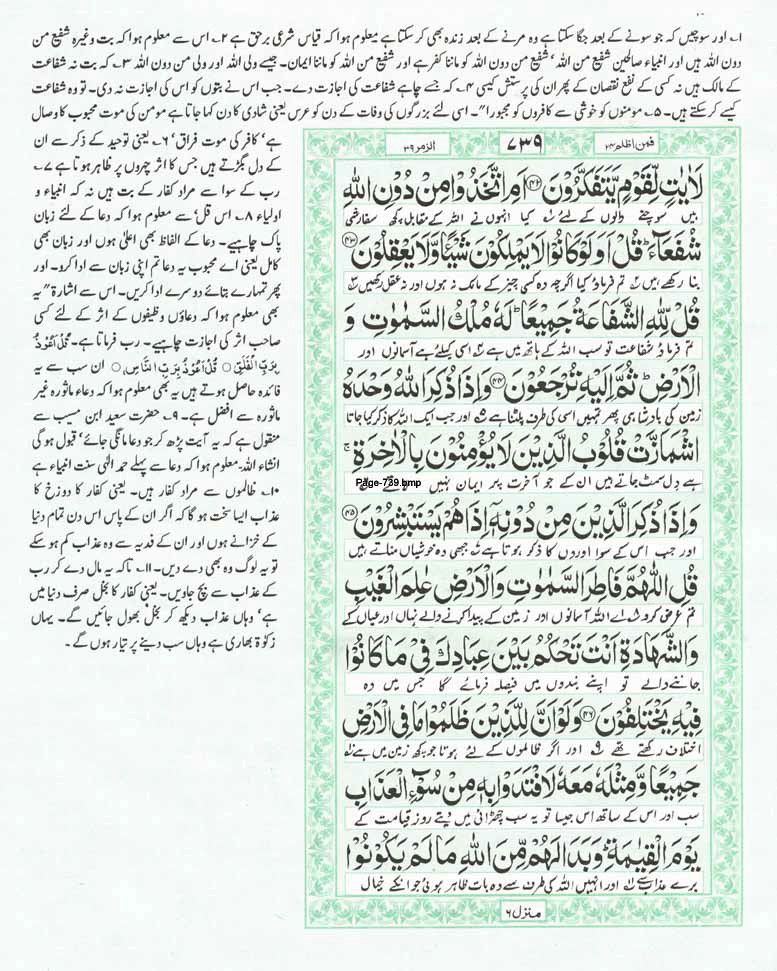 ۱۔ اور سوچیں کہ جو سونے کے بعد جگا سکتا ہے وہ مرنے کے بعد زندہ بھی کر سکتا ہے یہ معلوم ہوا کہ قیاس شرعی برحق ہے ۲۔ اس سے معلوم ہوا کہ بت وغیرہ شفیع من
دون اللہ ہیں اور انبیاء صالحین شفیع من اللہ، شفیع من دون اللہ کو ماننا کفر ہے اور شفیع من اللہ کو ماننا ایمان۔ جیسے ولی اللہ اور ولی من دون اللہ ۳۔ کہ بت نہ شفاعت
کے مالک ہیں نہ کسی کے نفع نقصان کے پھر ان کی پرستش کیسی ۴۔ کہ جسے چاہے شفاعت کی اجازت دے۔ جب اس نے بتوں کو اس کی اجازت نہ دی۔ تو وہ شفاعت
کیسے کر سکتے ہیں۔ ۵۔ مومنوں کو خوشی سے کافروں کو مجبوراً"۔ اسی لئے بزرگوں کی وفات کے دن کو عرس یعنی شادی کا دن کہا جاتا ہے مومن کی موت محبوب کا وصال
ہے، کافر کی موت فراق، ۶۔ یعنی توحید کے ذکر سے ان
کے دل بگڑتے ہیں جس کا اثر چہروں پر ظاہر ہوتا ہے ۷۔
رب کے سوا سے مراد کفار کے بت ہیں نہ کہ انبیاء و
اولیاء ۸۔ اس قل سے معلوم ہوا کہ دعا کے لئے زبان
پاک چاہیے۔ دعا کے الفاظ بھی اعلیٰ ہوں اور زبان بھی
کامل یعنی اے محبوب یہ دعا تم اپنی زبان سے ادا کرو۔ اور
پھر تمہارے بتائے دوسرے ادا کریں۔ اس سے اشارۃ" یہ
بھی معلوم ہوا کہ دعاؤں وظیفوں کے اثر کے لئے کسی
صاحب اثر کی اجازت چاہیے۔ رب فرماتا ہے۔ قُلْ اَعُوْذُ
بِرَبِّ الْفَلَقِ ○ قُلْ اَعُوْذُ بِرَبِّ النَّاسِ ○ ان سب سے یہ
فائدہ حاصل ہوتے ہیں یہ بھی معلوم ہوا کہ دعاء ماثورہ غیر
ماثورہ سے افضل ہے۔ ۹۔ حضرت سعید ابن مسیب سے
منقول ہے کہ یہ آیت پڑھ کر جو دعا مانگی جائے، قبول ہو گی
انشاء اللہ۔ معلوم ہوا کہ دعا سے پہلے حمد الٰہی سنت انبیاء ہے
۱۰۔ ظالموں سے مراد کفار ہیں۔ یعنی کفار کا دوزخ کا
عذاب ایسا سخت ہو گا کہ اگر ان کے پاس اس دن تمام دنیا
کے خزانے ہوں اور ان کے فدیہ سے وہ عذاب کم ہو سکے
تو یہ لوگ وہ بھی دے دیں۔ ۱۱۔ تاکہ یہ مال دے کر رب
کے عذاب سے بچ جاویں۔ یعنی کفار کا بخل صرف دنیا میں
ہے، وہاں عذاب دیکھ کر بخل بھول جائیں گے۔ یہاں
زکوٰۃ بھاری ہے وہاں سب دینے پر تیار ہوں گے۔
فمن اظلم ۲۴ ۷۳۹ الزمر ۳۹
لَاٰيٰتٍ لِّقَوْمٍ يَّتَفَكَّرُوْنَ ﴿۴۲﴾ اَمِ اتَّخَذُوْا مِنْ دُوْنِ اللّٰهِ
ہیں سوچنے والوں کے لئے ۱ کیا انہوں نے اللہ کے مقابل کچھ سفارشی
شُفَعَآءَ ؕ قُلْ اَوَلَوْ كَانُوْا لَا يَمْلِكُوْنَ شَيْـًٔا وَّلَا يَعْقِلُوْنَ ﴿۴۳﴾
بنا رکھے ہیں ۲ تم فرماؤ کیا اگرچہ وہ کسی چیز کے مالک نہ ہوں اور نہ عقل رکھیں ۳
قُلْ لِّلّٰهِ الشَّفَاعَةُ جَمِيْعًا ؕ لَهٗ مُلْكُ السَّمٰوٰتِ وَ
تم فرماؤ شفاعت تو سب اللہ کے ہاتھ میں ہے ۴ اسی کیلئے ہے آسمانوں اور
الْاَرْضِ ؕ ثُمَّ اِلَيْهِ تُرْجَعُوْنَ ﴿۴۴﴾ وَاِذَا ذُكِرَ اللّٰهُ وَحْدَهُ
زمین کی بادشاہی پھر تمہیں اسی کی طرف پلٹنا ہے ۵ اور جب ایک اللہ کا ذکر کیا جاتا
اشْمَاَزَّتْ قُلُوْبُ الَّذِيْنَ لَا يُؤْمِنُوْنَ بِالْاٰخِرَةِ ۚ
ہے دل سمٹ جاتے ہیں ان کے جو آخرت پر ایمان نہیں
Page-739.bmp
وَاِذَا ذُكِرَ الَّذِيْنَ مِنْ دُوْنِهٖۤ اِذَا هُمْ يَسْتَبْشِرُوْنَ ﴿۴۵﴾
اور جب اس کے سوا اوروں کا ذکر ہوتا ہے ۷ جبھی وہ خوشیاں مناتے ہیں
قُلِ اللّٰهُمَّ فَاطِرَ السَّمٰوٰتِ وَالْاَرْضِ عٰلِمَ الْغَيْبِ
تم عرض کرو ۸ اے اللہ آسمانوں اور زمین کے پیدا کرنے والے نہاں اور عیاں کے
وَالشَّهَادَةِ اَنْتَ تَحْكُمُ بَيْنَ عِبَادِكَ فِيْ مَا كَانُوْا
جاننے والے تو اپنے بندوں میں فیصلہ فرمائے گا جس میں وہ
فِيْهِ يَخْتَلِفُوْنَ ﴿۴۶﴾ وَلَوْ اَنَّ لِلَّذِيْنَ ظَلَمُوْا مَا فِي الْاَرْضِ
اختلاف رکھتے تھے ۹ اور اگر ظالموں کے لئے ہوتا جو کچھ زمین میں ہے ۱۰
جَمِيْعًا وَّمِثْلَهٗ مَعَهٗ لَافْتَدَوْا بِهٖ مِنْ سُوْٓءِ الْعَذَابِ
سب اور اس کے ساتھ اس جیسا تو یہ سب چھڑائی میں دیتے روز قیامت کے
يَوْمَ الْقِيٰمَةِ ؕ وَبَدَا لَهُمْ مِّنَ اللّٰهِ مَا لَمْ يَكُوْنُوْا
برے عذاب سے ۱۱ اور انہیں اللہ کی طرف سے وہ بات ظاہر ہوئی جو انکے خیال
منزل ۶